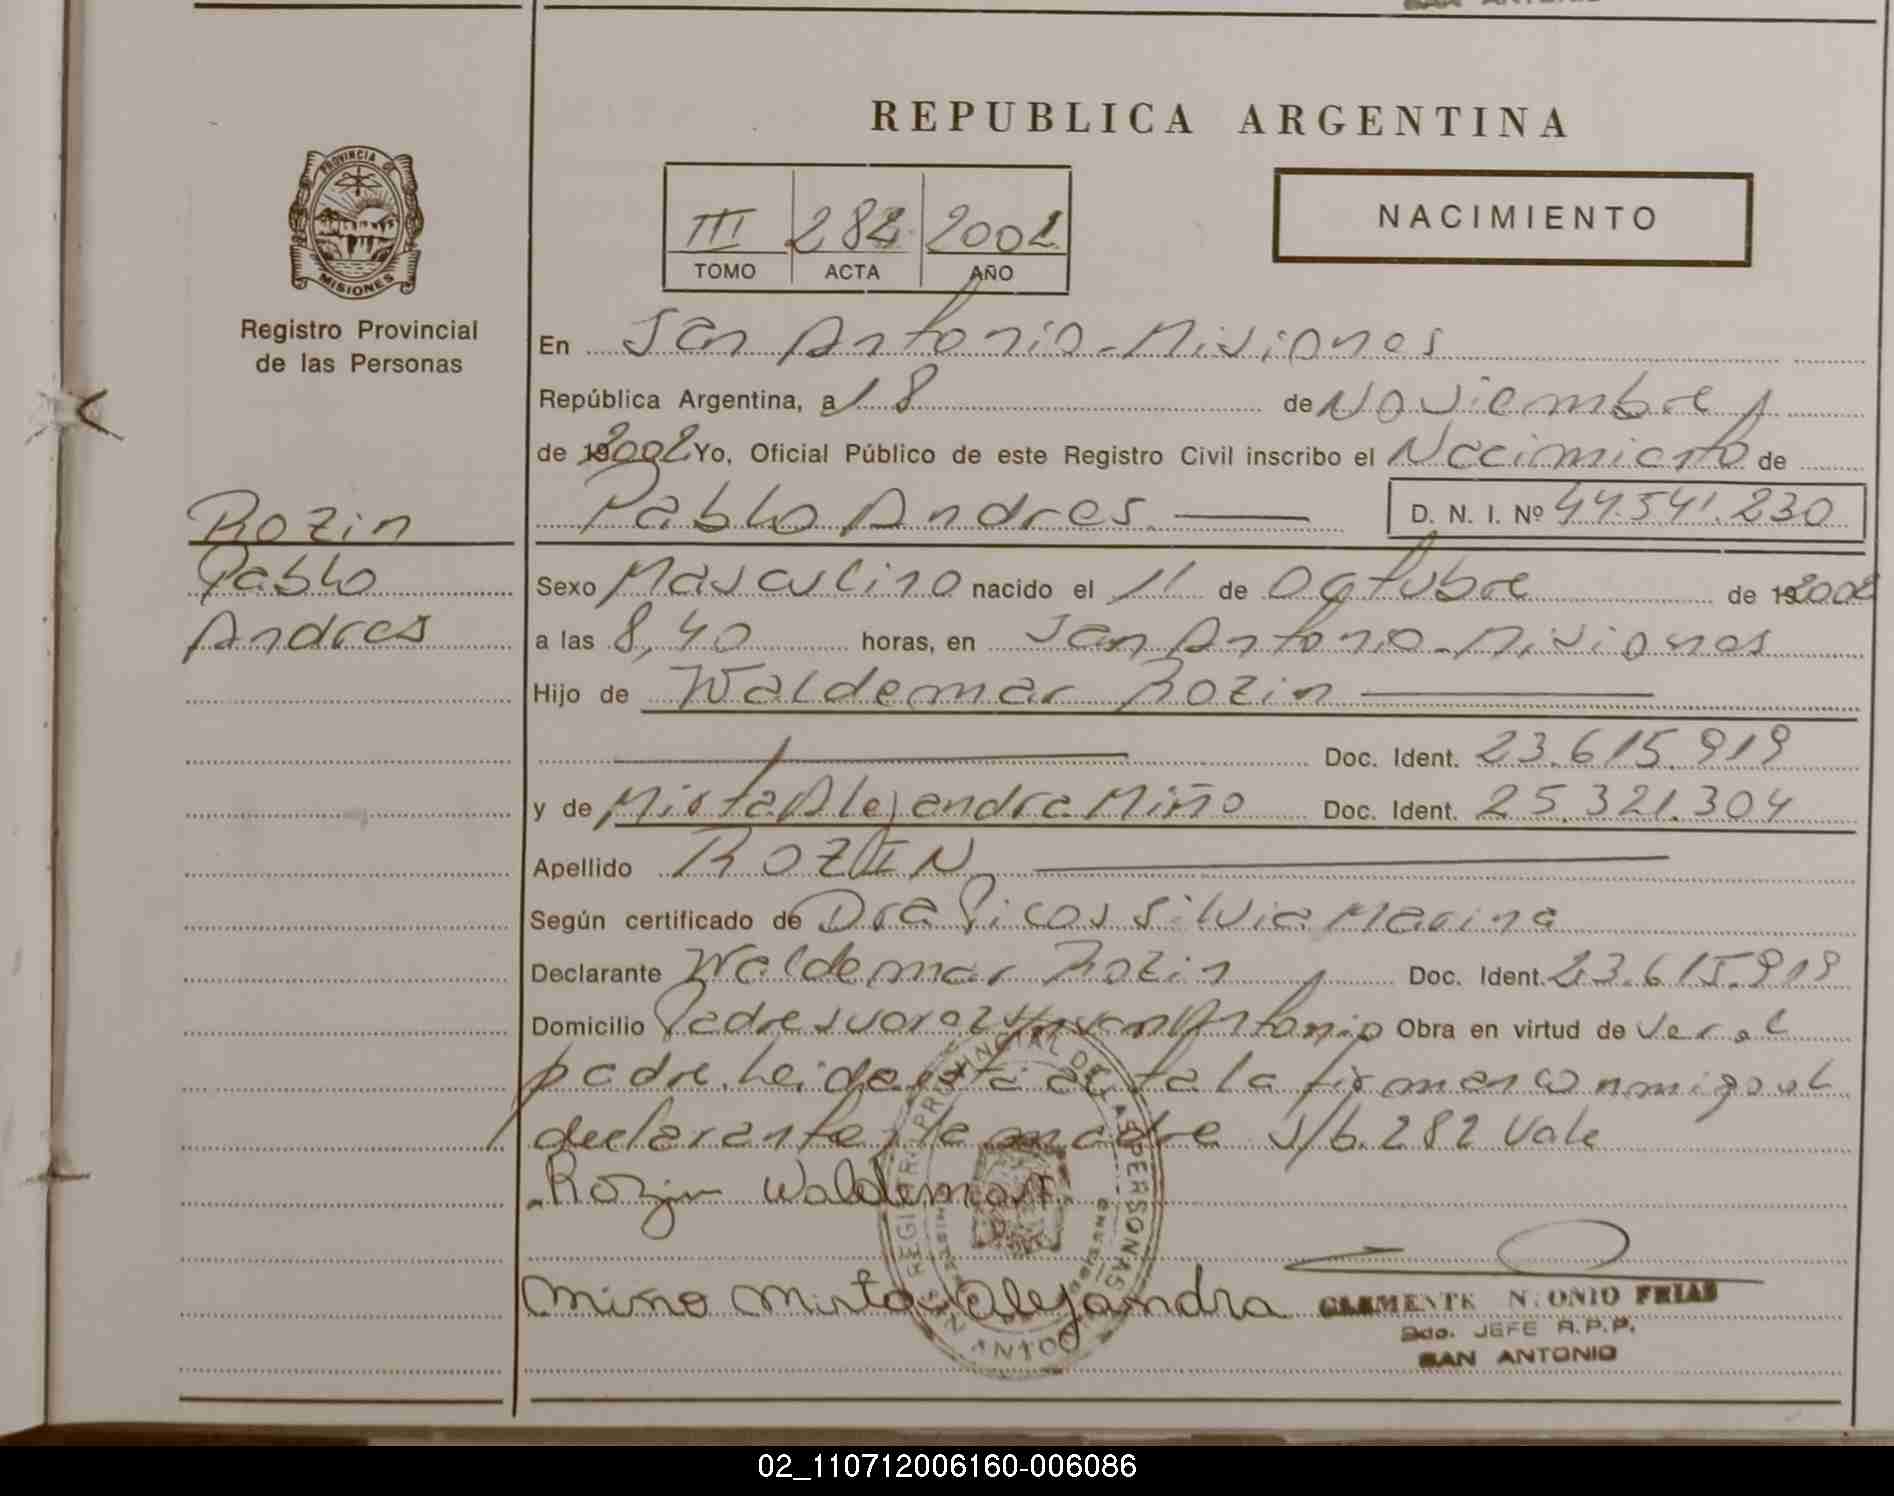 REPUBLICA ARGENTINA
PROVINCIA DE
MISIONES
Registro Provincial
de las Personas
III 282 2002
TOMO ACTA AÑO
NACIMIENTO
En San Antonio - Misiones
República Argentina, a 18 de Noviembre
de 192002 Yo, Oficial Público de este Registro Civil inscribo el Nacimiento de
Rozin
Pablo Andres D. N. I. Nº 44.541.230
Pablo
Sexo Masculino nacido el 11 de Octubre de 192002
Andres
a las 8,40 horas, en San Antonio - Misiones
Hijo de Waldemar Rozin
Doc. Ident. 23.615.919
y de Mirta Alejandra Miño Doc. Ident. 25.321.304
Apellido ROZIN
Según certificado de Dra Picos Silvia Marina
Declarante Waldemar Rozin Doc. Ident. 23.615.919
Domicilio Antonio Obra en virtud de ser el
padre. Leida esta acta la firman conmigo el
declarante y la madre S/b. 282 Vale
Rozin Waldemar
Miño Mirta Alejandra
REGISTRO PROVINCIAL DE LAS PERSONAS
FRIAS
2do. JEFE R.P.P.
SAN ANTONIO
02_110712006160-006086